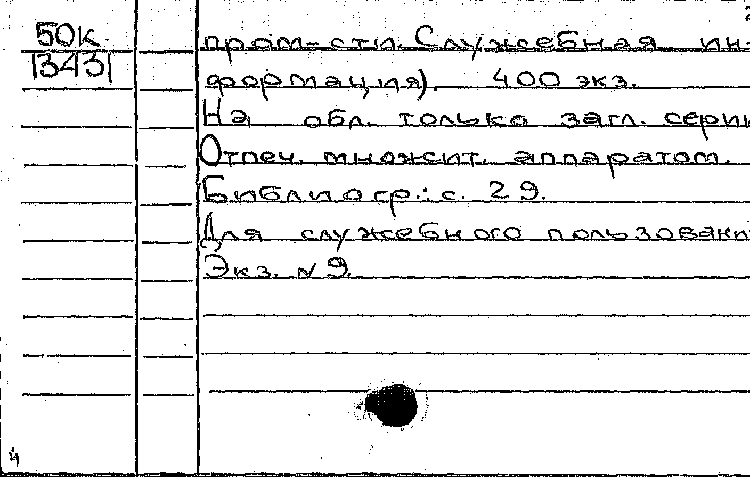 2
50К
13431
пром-сти. Служебная ин-
формация). 400 экз.
На обл. только загл. серии
Отпеч. множит. аппаратом.
Библиогр.: с. 29.
Для служебного пользовани
Экз. N 9.
4